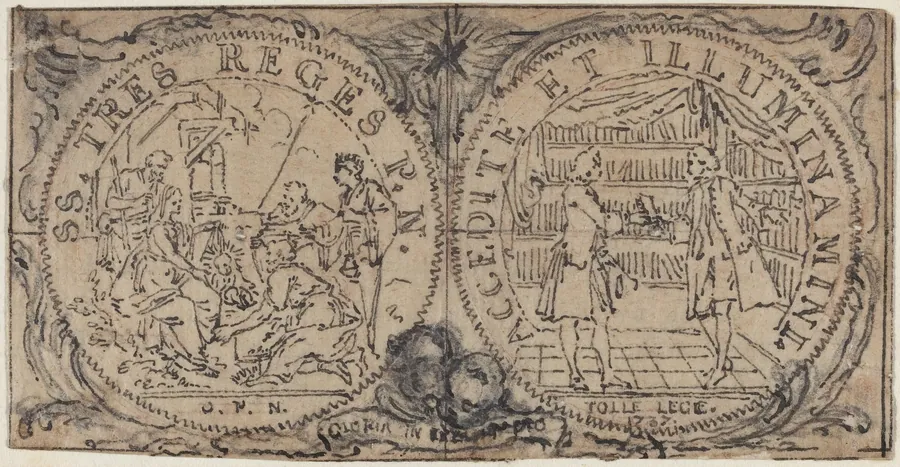 SS. TRES REGES P. N.
O. P. N.
ACCEDITE ET ILLUMINAMINI.
TOLLE LEGE.
GLORIA IN DEO